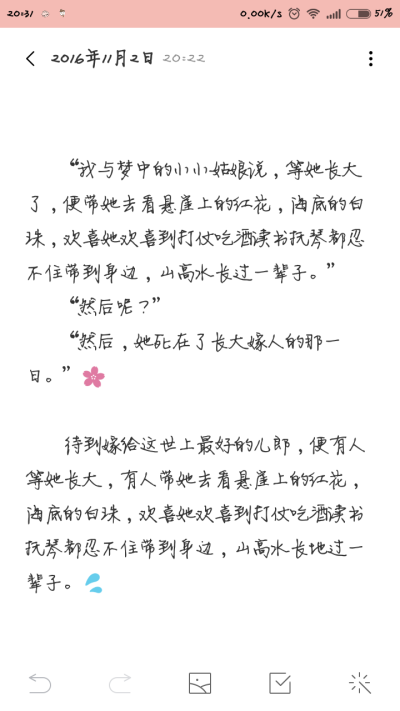 20:31 0.00K/s 51%
2016年11月2日 20:22
“我与梦中的小小姑娘说，等她长大
了，便带她去看悬崖上的红花，海底的白
珠，欢喜她欢喜到打仗吃酒读书抚琴都忍
不住带到身边，山高水长过一辈子。”
“然后呢？”
“然后，她死在了长大嫁人的那一
日。”🌸
待到嫁给这世上最好的儿郎，便有人
等她长大，有人带她去看悬崖上的红花，
海底的白珠，欢喜她欢喜到打仗吃酒读书
抚琴都忍不住带到身边，山高水长地过一
辈子。💦